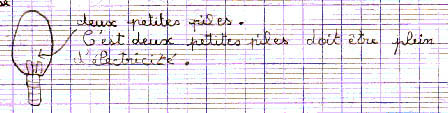 deux petites piles.
C'est deux petites piles doit être plein
d'électricité.